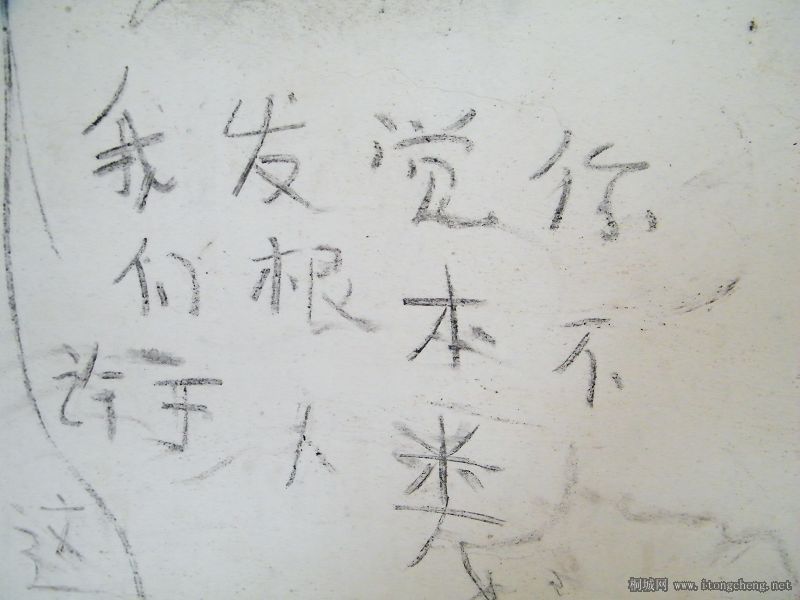 我发觉你
们根本不
许于人类
这
桐城网 www.itongcheng.net